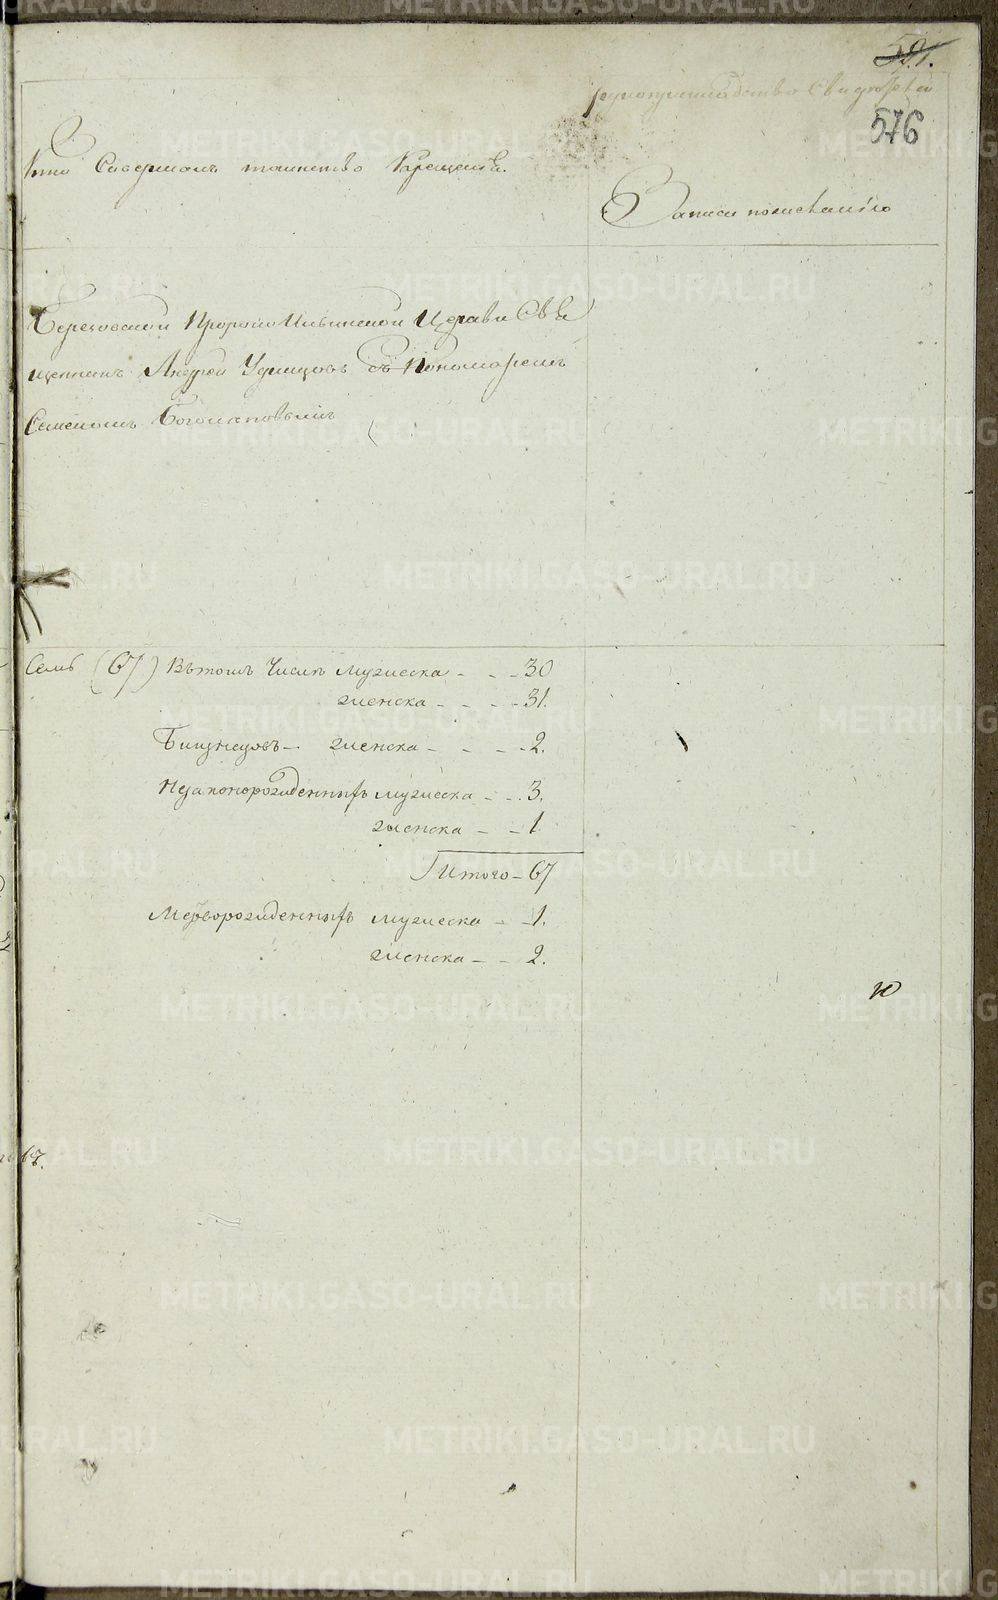 591.
рукоприкладство свидетелей
576
Кто совершалъ таинство крещенія.
Записи пожеланію
Березовской Пророко Ильинской Церкви Свя
щенникъ Андрей Удинцовъ съ Пономаремъ
Семеномъ Богомоловымъ
Семь (67) Вътомъ Числѣ мужеска - - - 30
женска - - - - 31.
Близнецовъ - женска - - - - 2.
Незаконорожденныхъ мужеска - - 3.
женска - - 1
Итого - 67
Мертворожденныхъ мужеска - - 1.
женска - - 2.
67.
METRIKI.GASO-URAL.RU